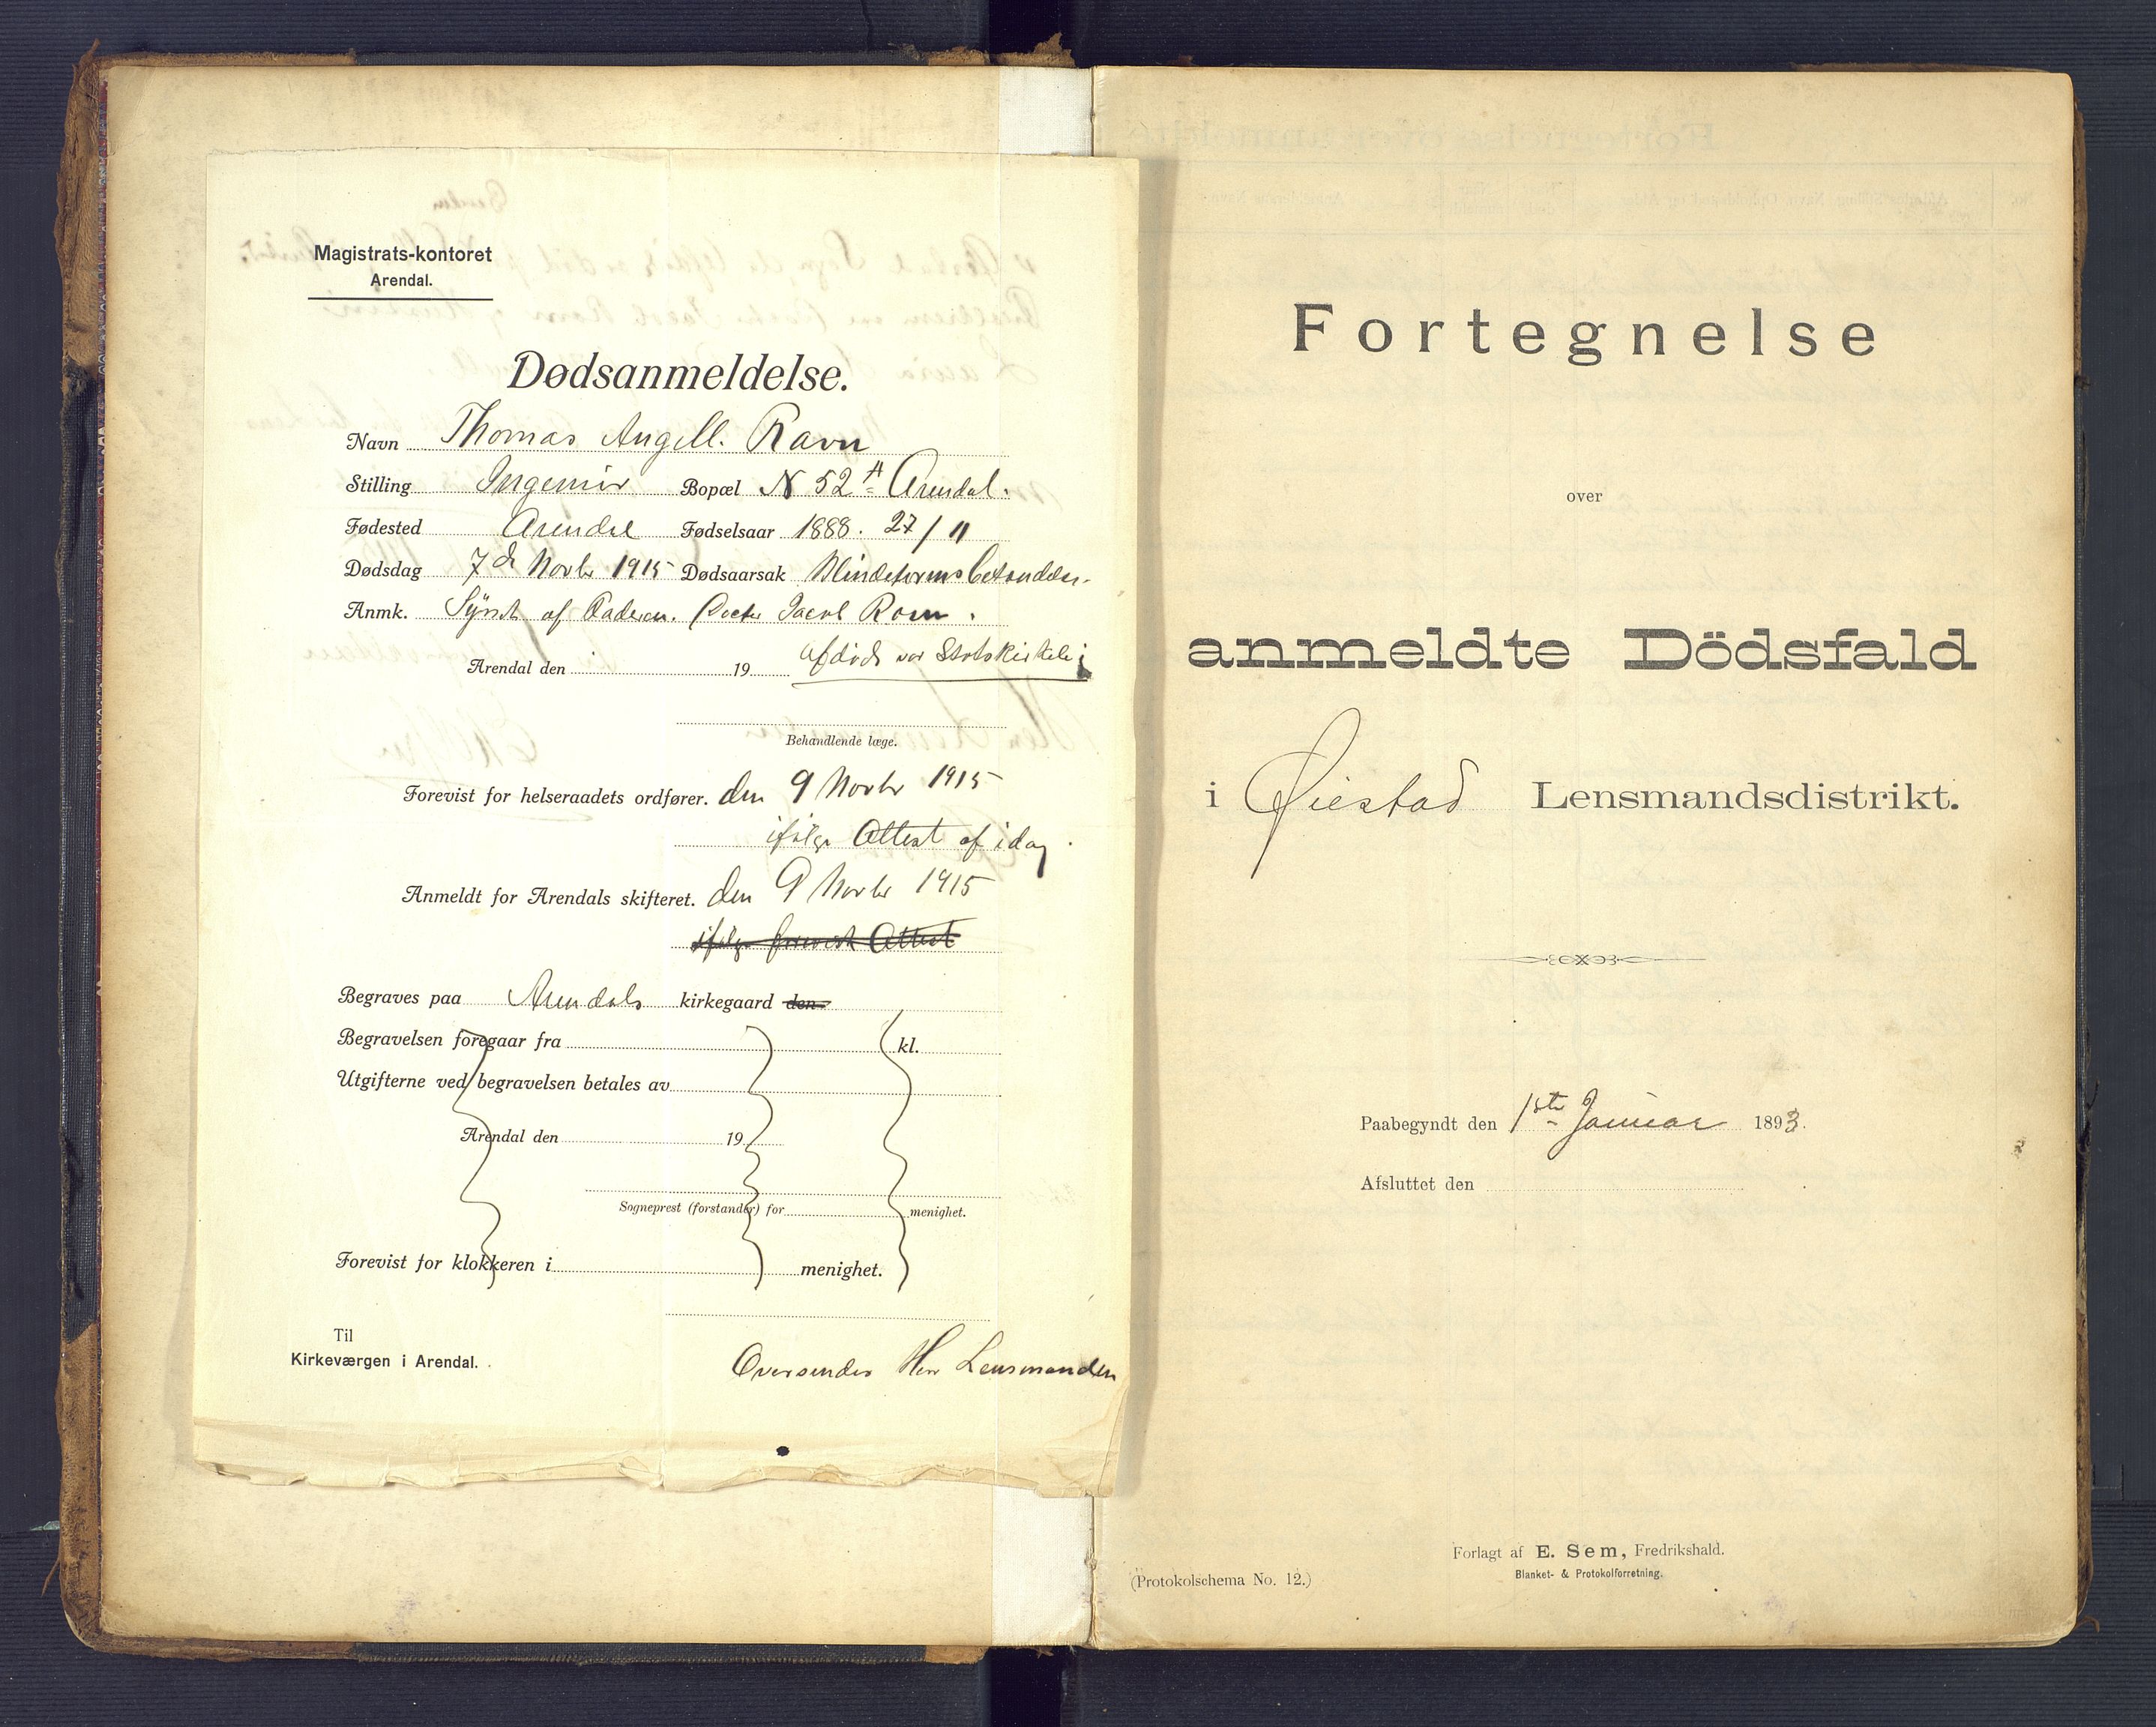 Magistrats-kontoret
Arendal.
Dødsanmeldelse.
Navn Thomas Angell. Ravn
Stilling Ingeniør Bopæl N 52 A Arendal.
Fødested Arendal Fødselsaar 1888. 27/11
Dødsdag 7de Novbr 1915 Dødsaarsak Blindetarmsbetændelse.
Anmk. Synet af Faderen. Doctor Jacob Ravn.
Arendal den 19 Afdøde var Statskirkelig
Behandlende læge.
Forevist for helseraadets ordfører. den 9 Novbr 1915
ifølge Attest af idag.
Anmeldt for Arendals skifteret. den 9 Novbr 1915
ifølge forevist Attest
Begraves paa Arendals kirkegaard den
Begravelsen foregaar fra kl.
Utgifterne ved begravelsen betales av
Arendal den 19
Sogneprest (forstander) for menighet.
Forevist for klokkeren i menighet.
Til
Kirkeværgen i Arendal.
Oversendes Herr Lensmanden
Fortegnelse
over
anmeldte Dödsfald
i Øiestad Lensmandsdistrikt.
Paabegyndt den 1ste Januar 1893.
Afsluttet den
Forlagt af E. Sem, Fredrikshald.
Blanket- & Protokolforretning.
(Protokolschema No. 12.)